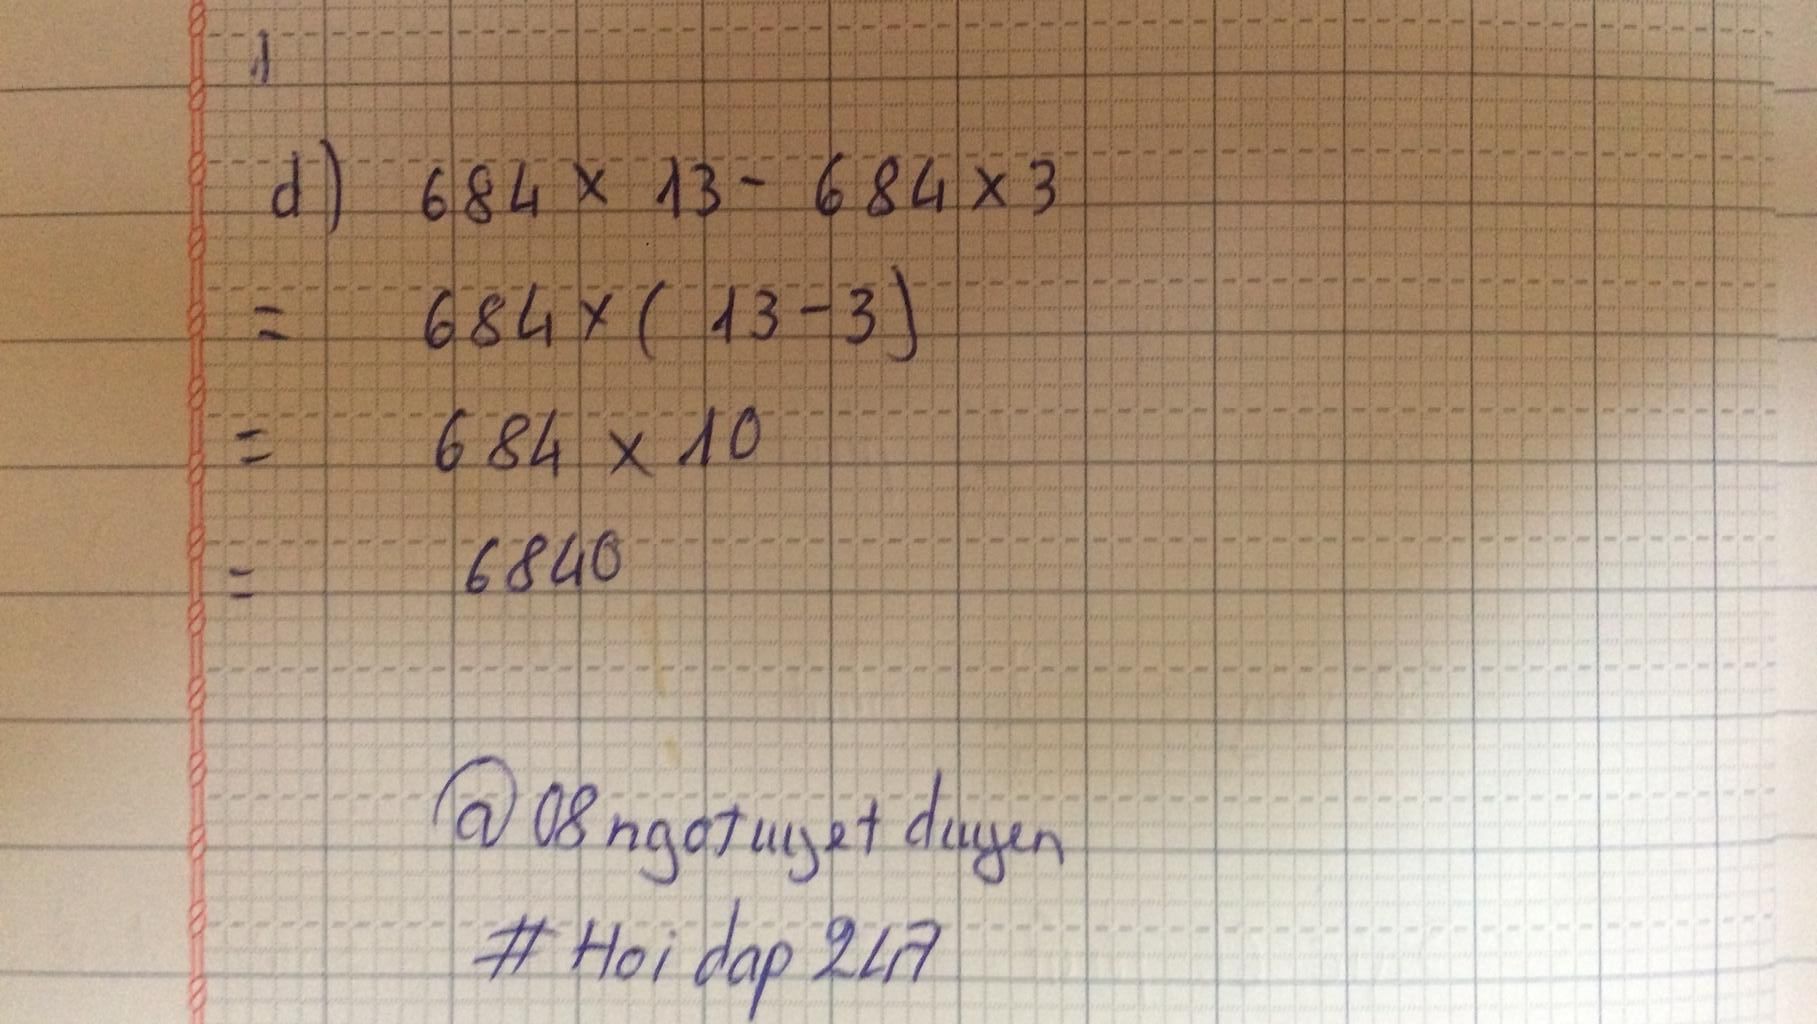 d) 684 × 13 - 684 × 3
= 684 × ( 13 - 3 )
= 684 × 10
= 6840
@08ngotuyetduyen
# Hoidap247